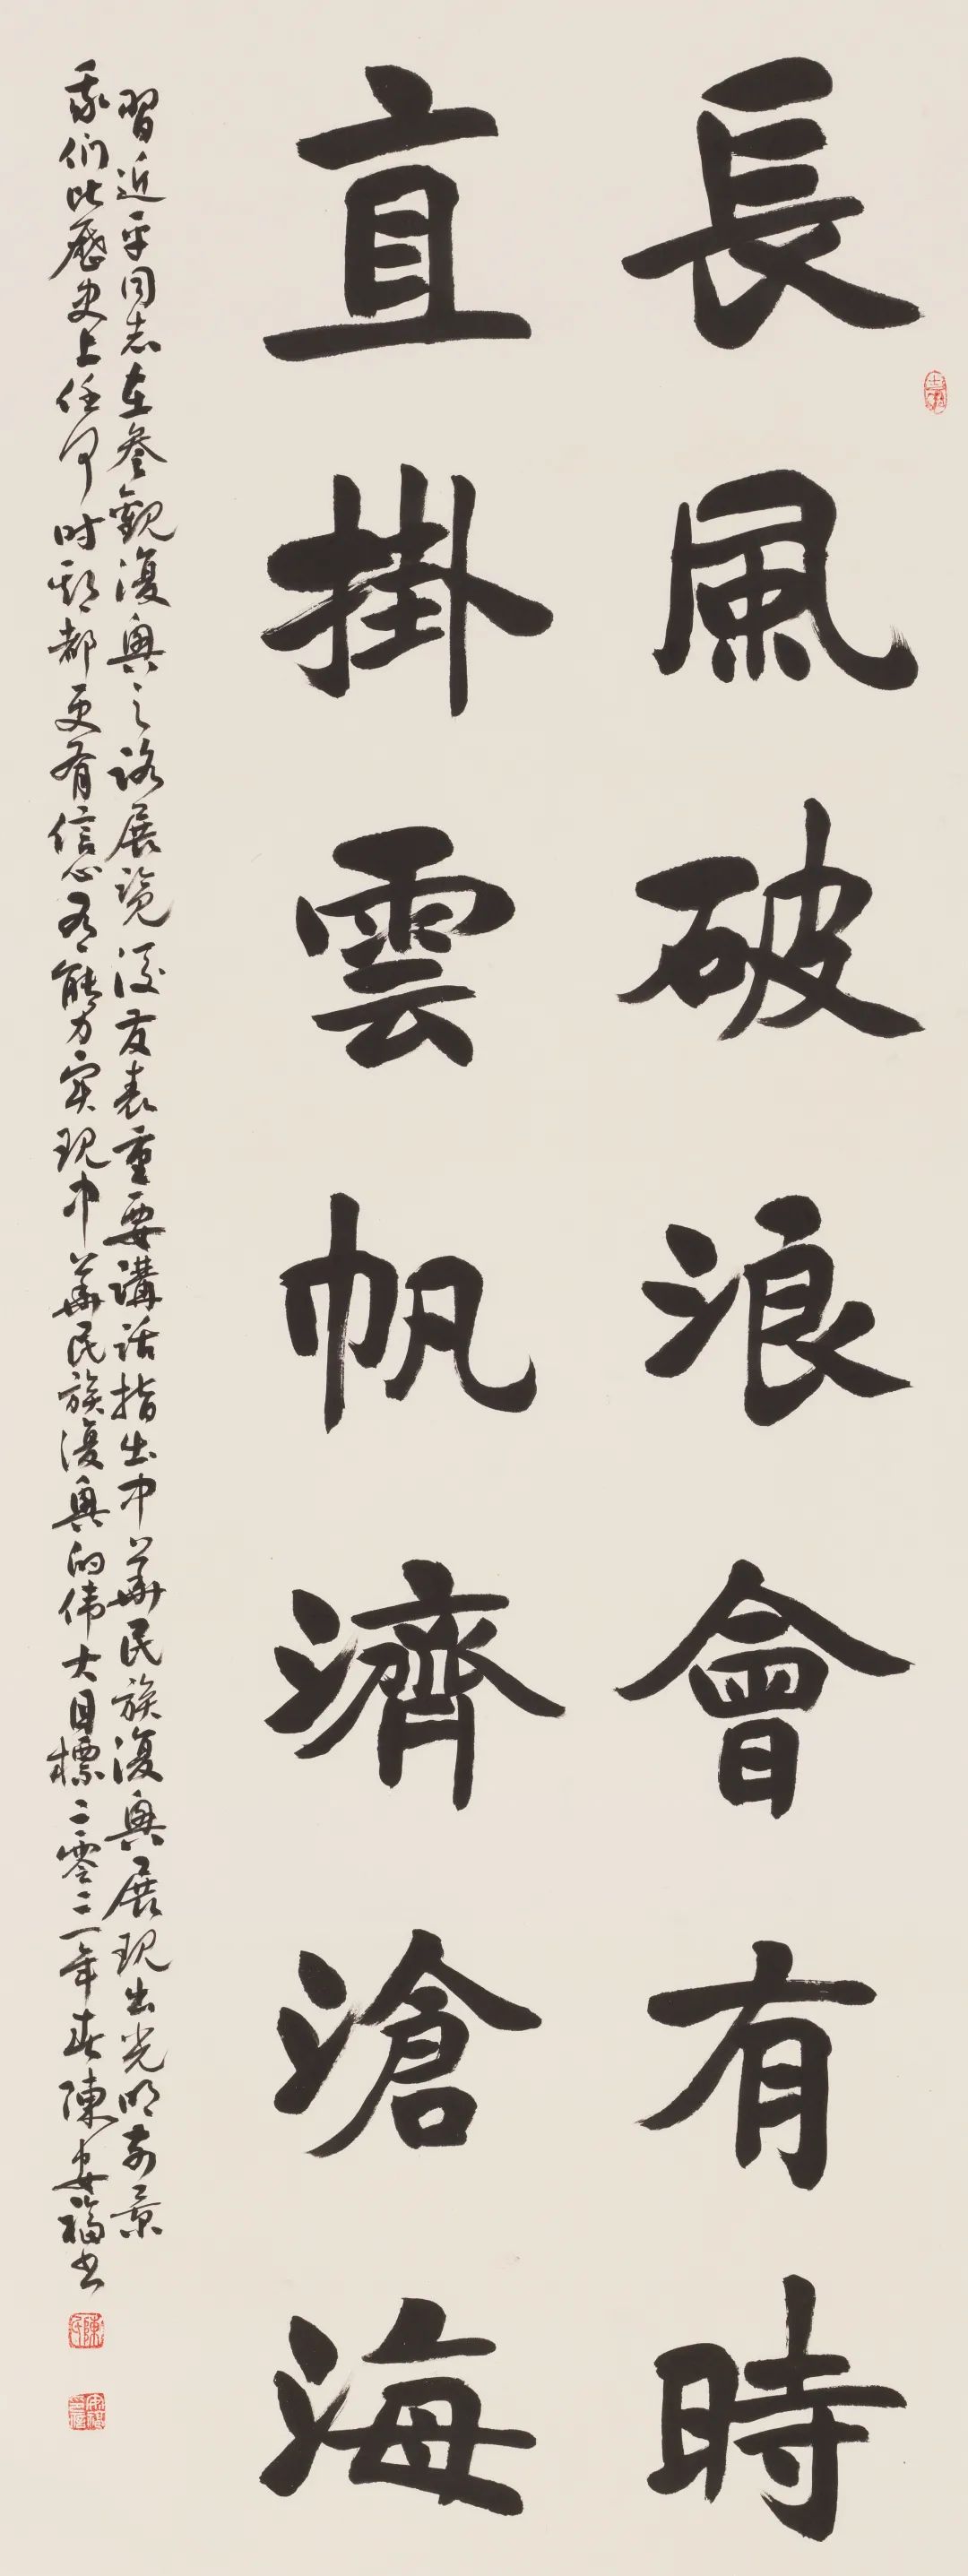 長風破浪會有時
直掛雲帆濟滄海
習近平同志在參觀復興之路展覽後发表重要講话指出中華民族復興展現出光明前景
我们比歷史上任何时期都更有信心有能力实現中華民族復興的伟大目標二零二一年春陳安福书